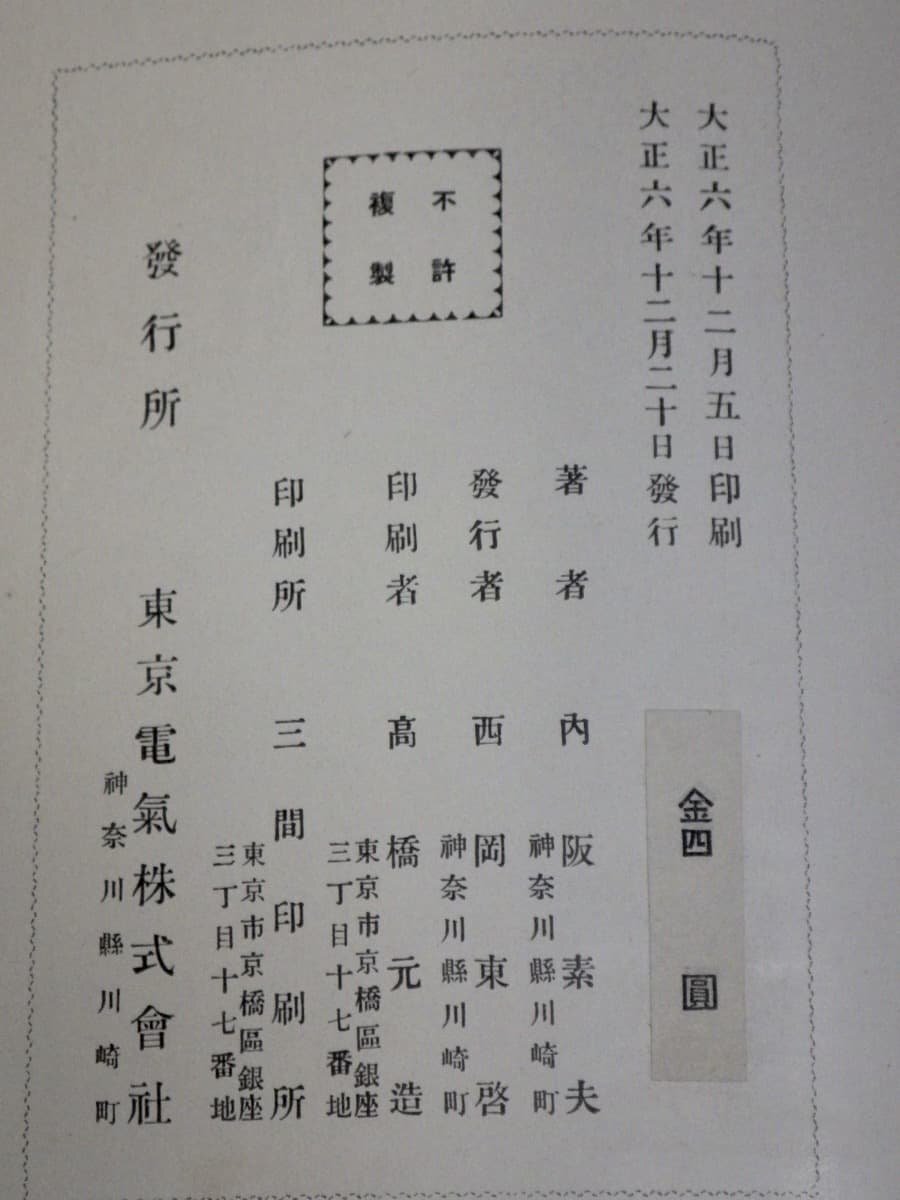 大正六年十二月五日印刷
大正六年十二月二十日發行
金四圓
不許
複製
著者 內阪素夫
神奈川縣川崎町
發行者 西岡東啓
神奈川縣川崎町
印刷者 高橋元造
東京市京橋區銀座
三丁目十七番地
印刷所 三間印刷所
東京市京橋區銀座
三丁目十七番地
發行所 東京電氣株式會社
神奈川縣川崎町